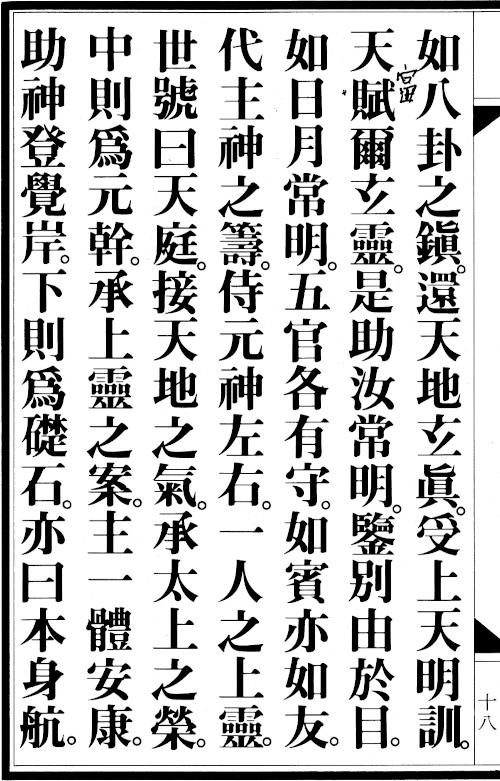 如八卦之鎭。還天地玄眞。受上天明訓。
富
天賦爾玄靈。是助汝常明。鑒別由於目。
如日月常明。五官各有守。如賓亦如友。
代主神之籌。侍元神左右。一人之上靈。
世號曰天庭。接天地之氣。承太上之榮。
中則爲元幹。承上靈之案。主一體安康。
助神登覺岸。下則爲礎石。亦曰本身航。
十八